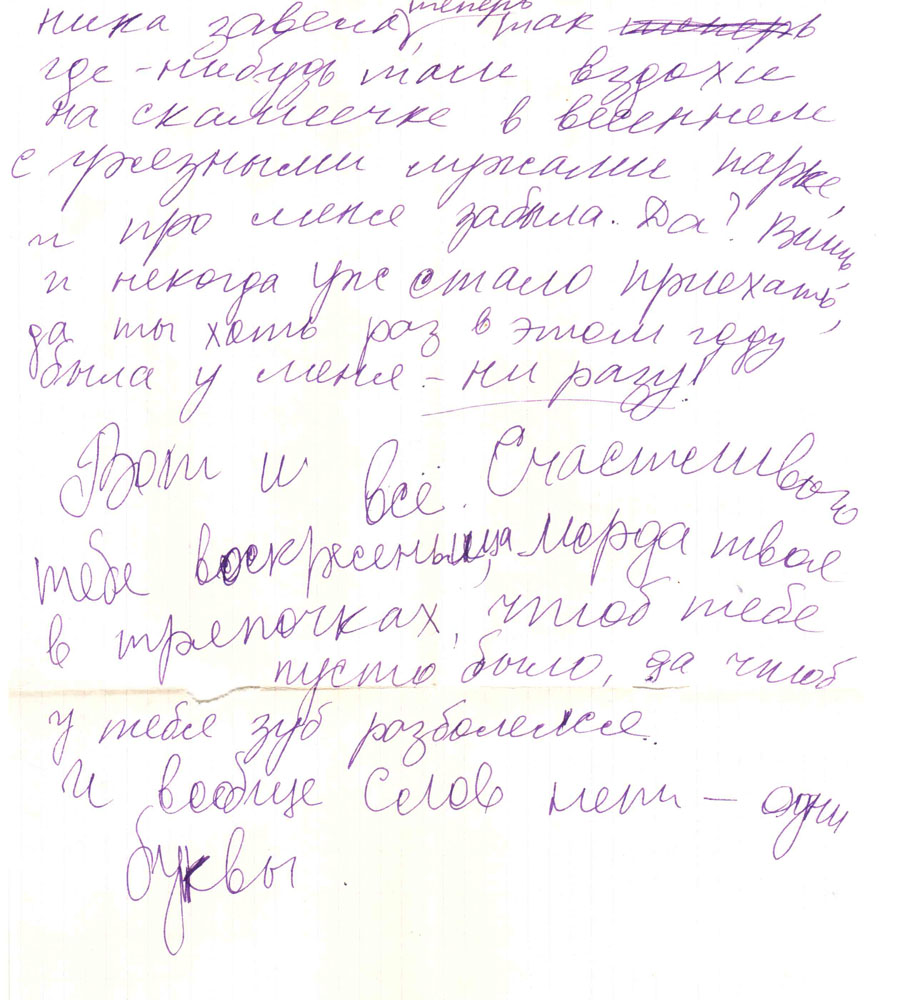 ника завела, теперь так ~~теперь~~
где-нибудь там вздохи
на скамеечке в весеннем
с грязными лужами парке,
и про меня забыла. Да? Вишь
и некогда уж стало приехать,
да ты хоть раз в этом году
была у меня - ни разу!
Вот и всё. Счастливого
тебе воскресеньица, морда твоя
в тряпочках, чтоб тебе
пусто было, да чтоб
у тебя зуб разболелся.
И вообще слов нет – одни
буквы.